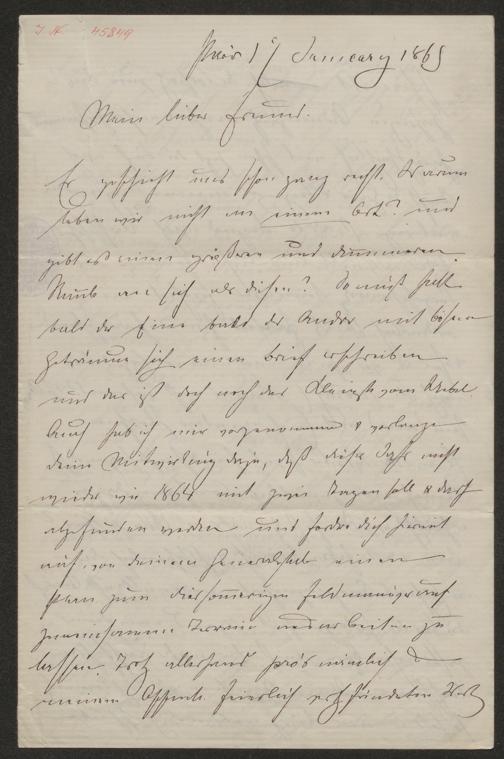 J. N. 45849
17 January 1865
Mein lieber Freund.
Es geschieht uns schon ganz recht. Warum
leben wir nicht an einem Ort? und
gibt es einen größeren und dummeren
Raub an sich als diesen? So muß halt
bald der Eine bald der Andre mit bösem
Gekrämme sich einen Brief erschreiben
und das ist doch noch das Kleinste vom Uebel
Auch hab ich mir vorgenommen & verlange
deine Mitwirkung dazu, daß dieses Jahr nicht
wieder wie 1864 mit zwei Tagen soll & darf
abgefunden werden und fordre dich hiemit
auf, von deinem Generalstab einen
Plan zum diessommerigen Feldmanöver auf
gemeinsamem Terrain ausarbeiten zu
lassen. Trotz allerhand
meinem feierlich verpfändeten Wort